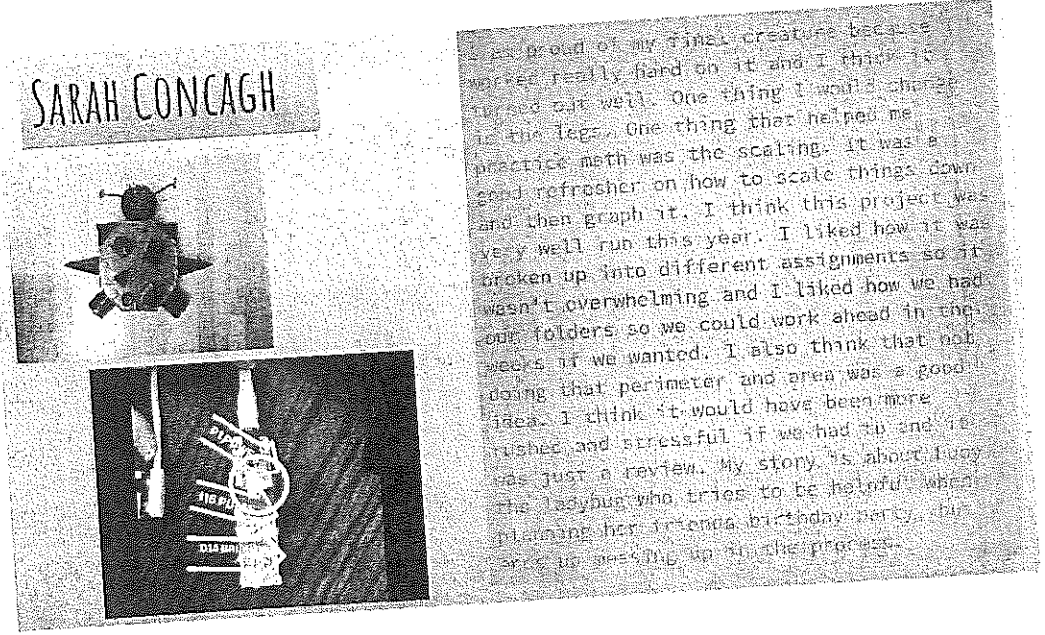 SARAH CONCAGH
I am proud of my final creature because I
worked really hard on it and I think it
turned out well. One thing I would change
is the legs. One thing that helped me
practice math was the scaling. It was a
good refresher on how to scale things down
and then graph it. I think this project was
very well run this year. I liked how it was
broken up into different assignments so it
wasn't overwhelming and I liked how we had
our folders so we could work ahead in the
weeks if we wanted. I also think that not
doing that perimeter and area was a good
idea. I think it would have been more
rushed and stressful if we had to and it
was just a review. My story is about Lucy
the ladybug who tries to be helpful when
planning her friends birthday party, but
ends up messing up in the process.